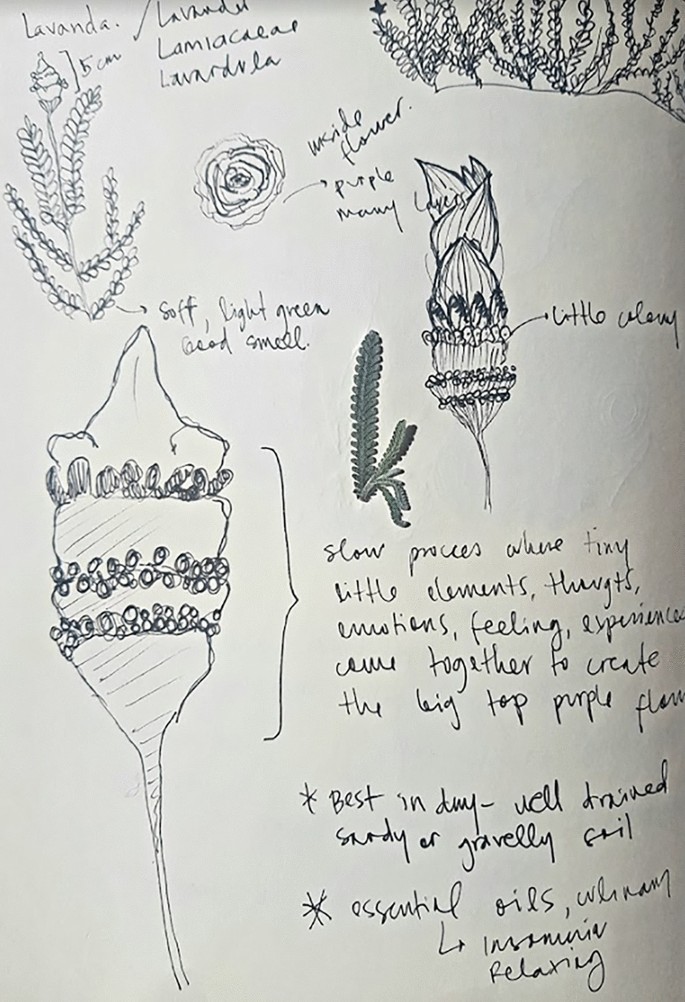 Lavanda. / Lavander
Lamiacaeae
Lavandula
5cm
inside
flower.
purple
many layers
soft, light green
Good smell.
little colony
slow procces where tiny
little elements, thougts,
emotions, feeling, experiences
come together to create
the big top purple flow
* Best in dry- well drained
sandy or gravelly soil
* essential oils, culinary
↳ Insomnia
Relaxing